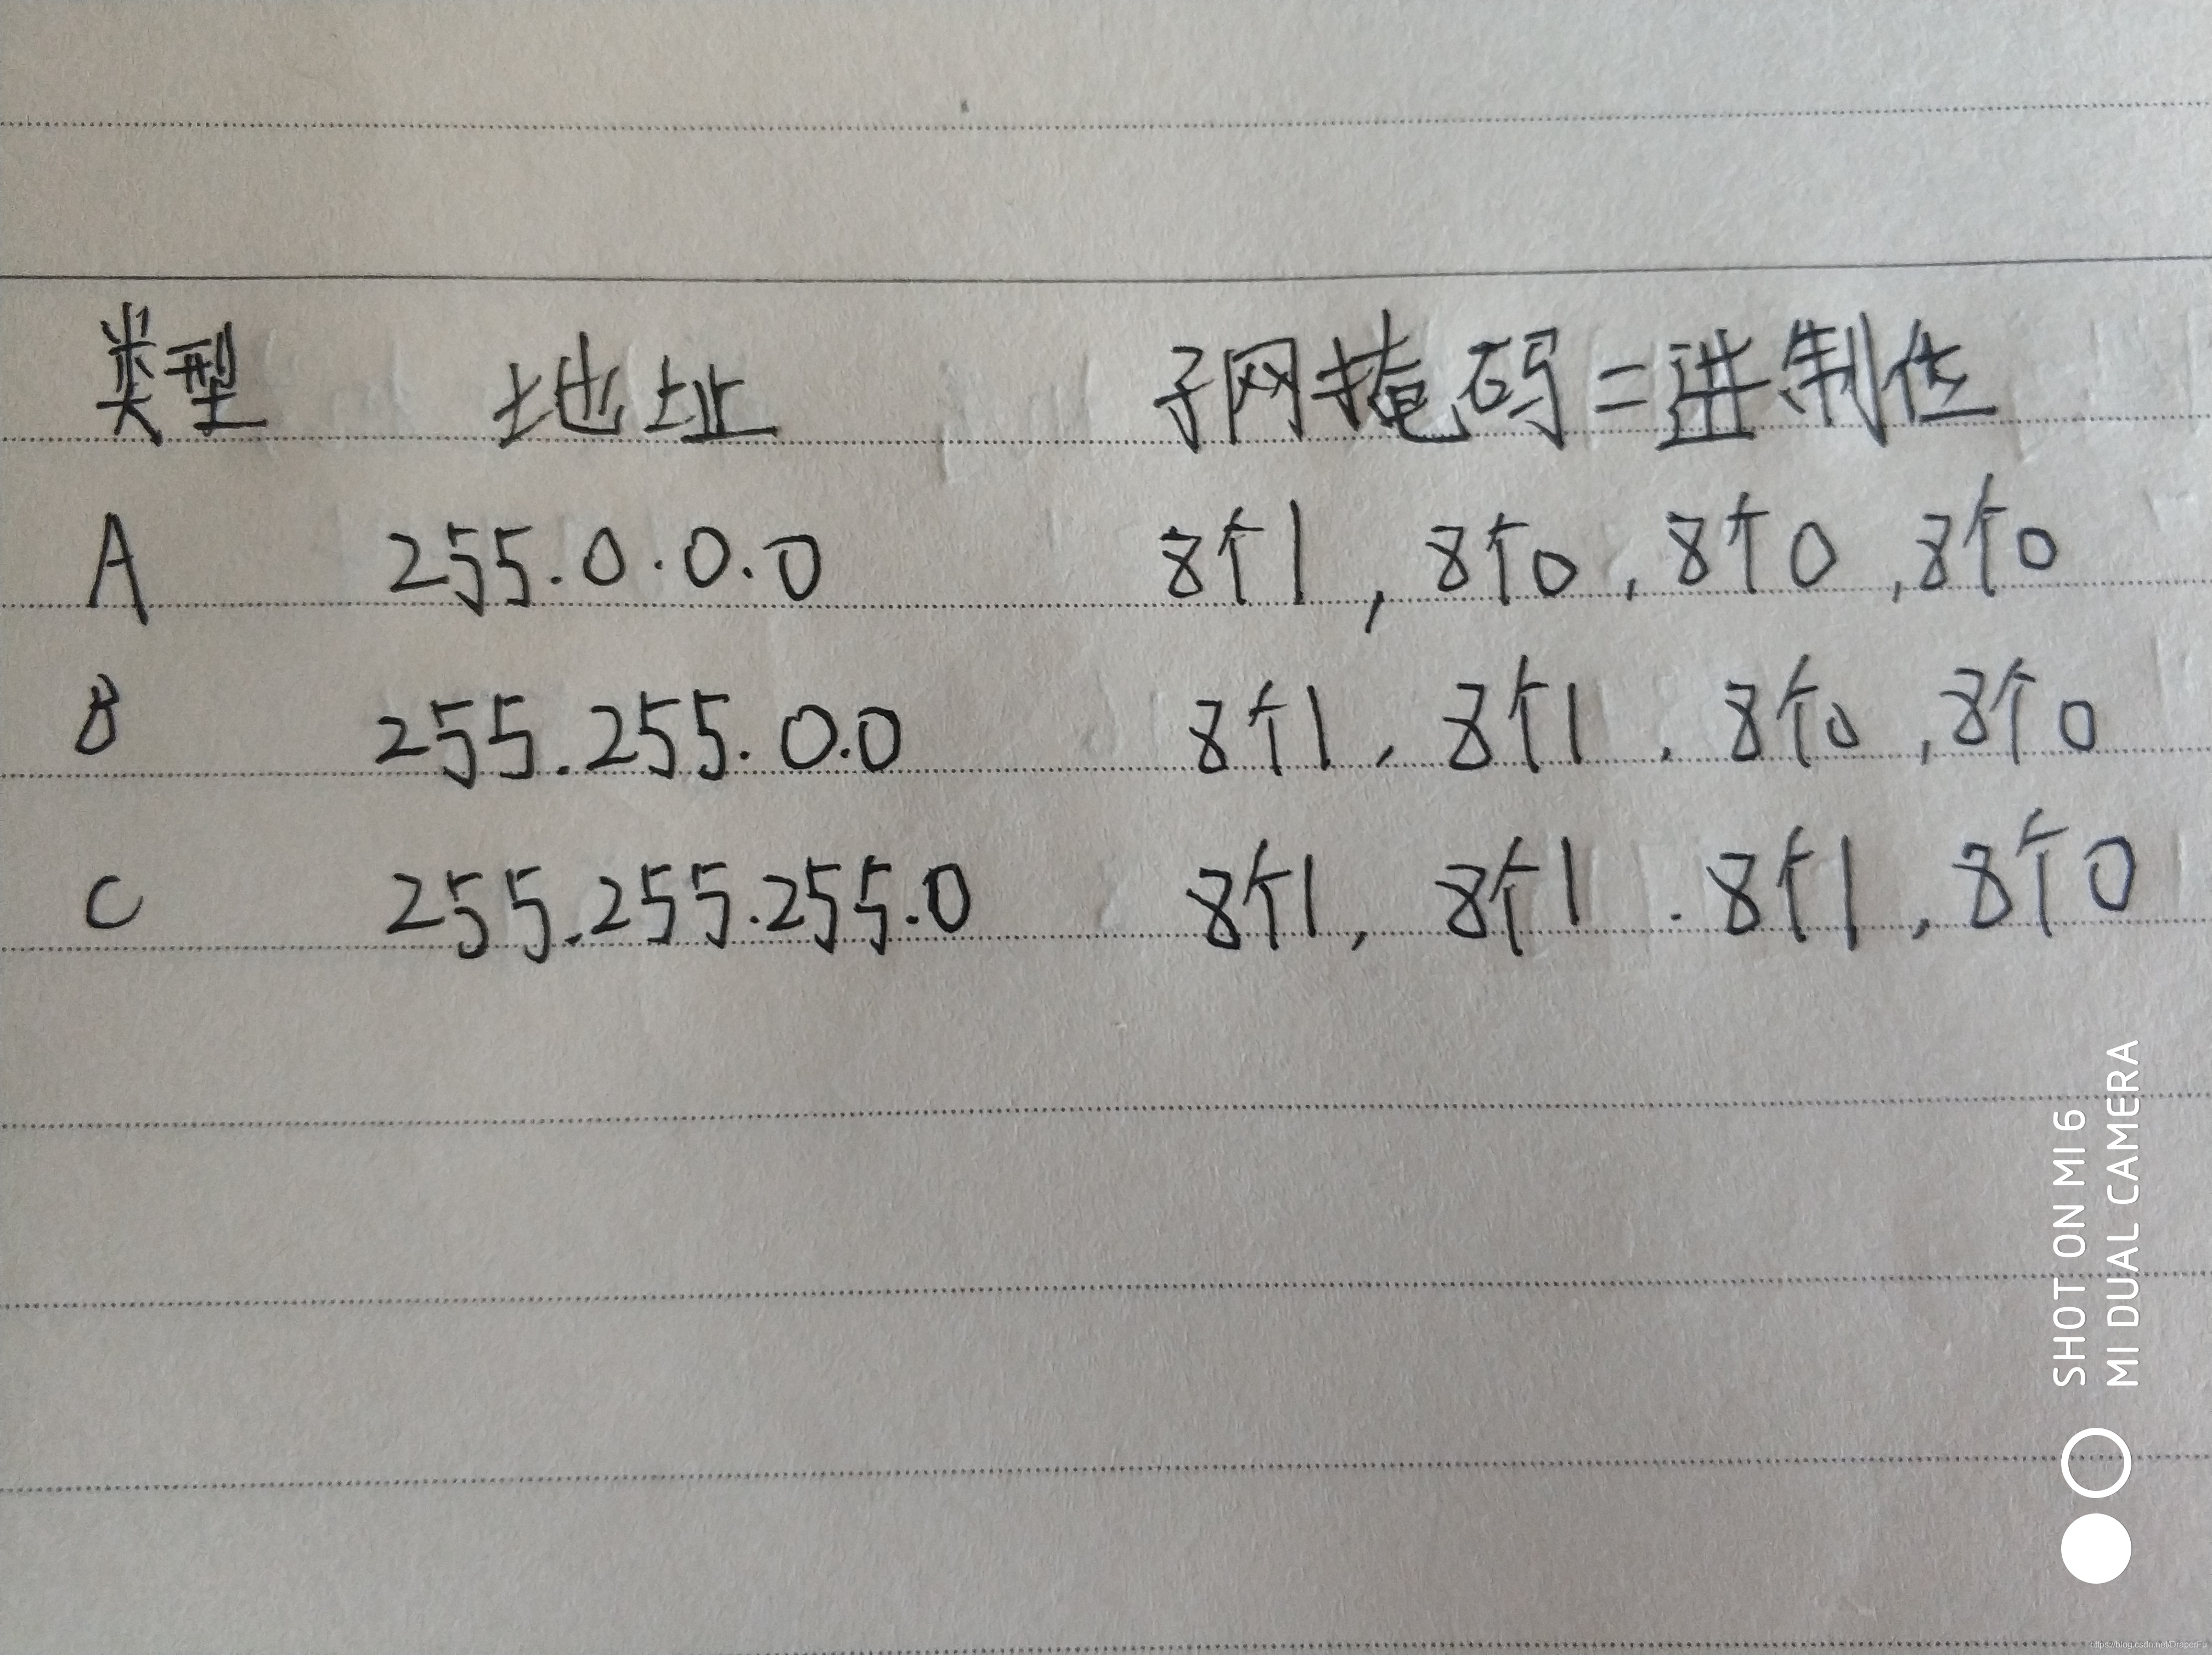 类型 地址 子网掩码二进制位
A 255.0.0.0 8个1,8个0,8个0,8个0
B 255.255.0.0 8个1,8个1,8个0,8个0
C 255.255.255.0 8个1,8个1.8个1,8个0
SHOT ON MI 6
MI DUAL CAMERA
https://blog.csdn.net/DraperFu